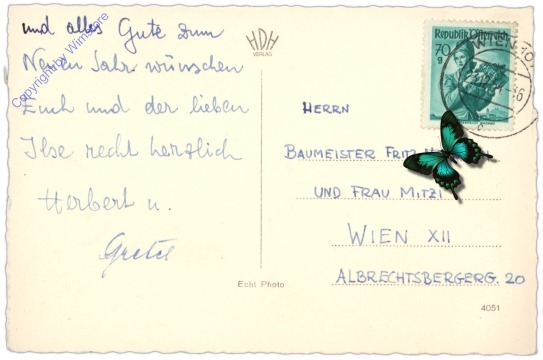 und alles Gute zum
Neuen Jahr wünschen
Euch und der lieben
Ilse recht herzlich
Herbert u.
Gretl
Copyright by Wimmore
HDH
VERLAG
Republik Österreich
70
g
WIEN 101
HERRN
BAUMEISTER FRITZ
UND FRAU MITZI
WIEN XII
ALBRECHTSBERGERG. 20
Echt Photo
4051